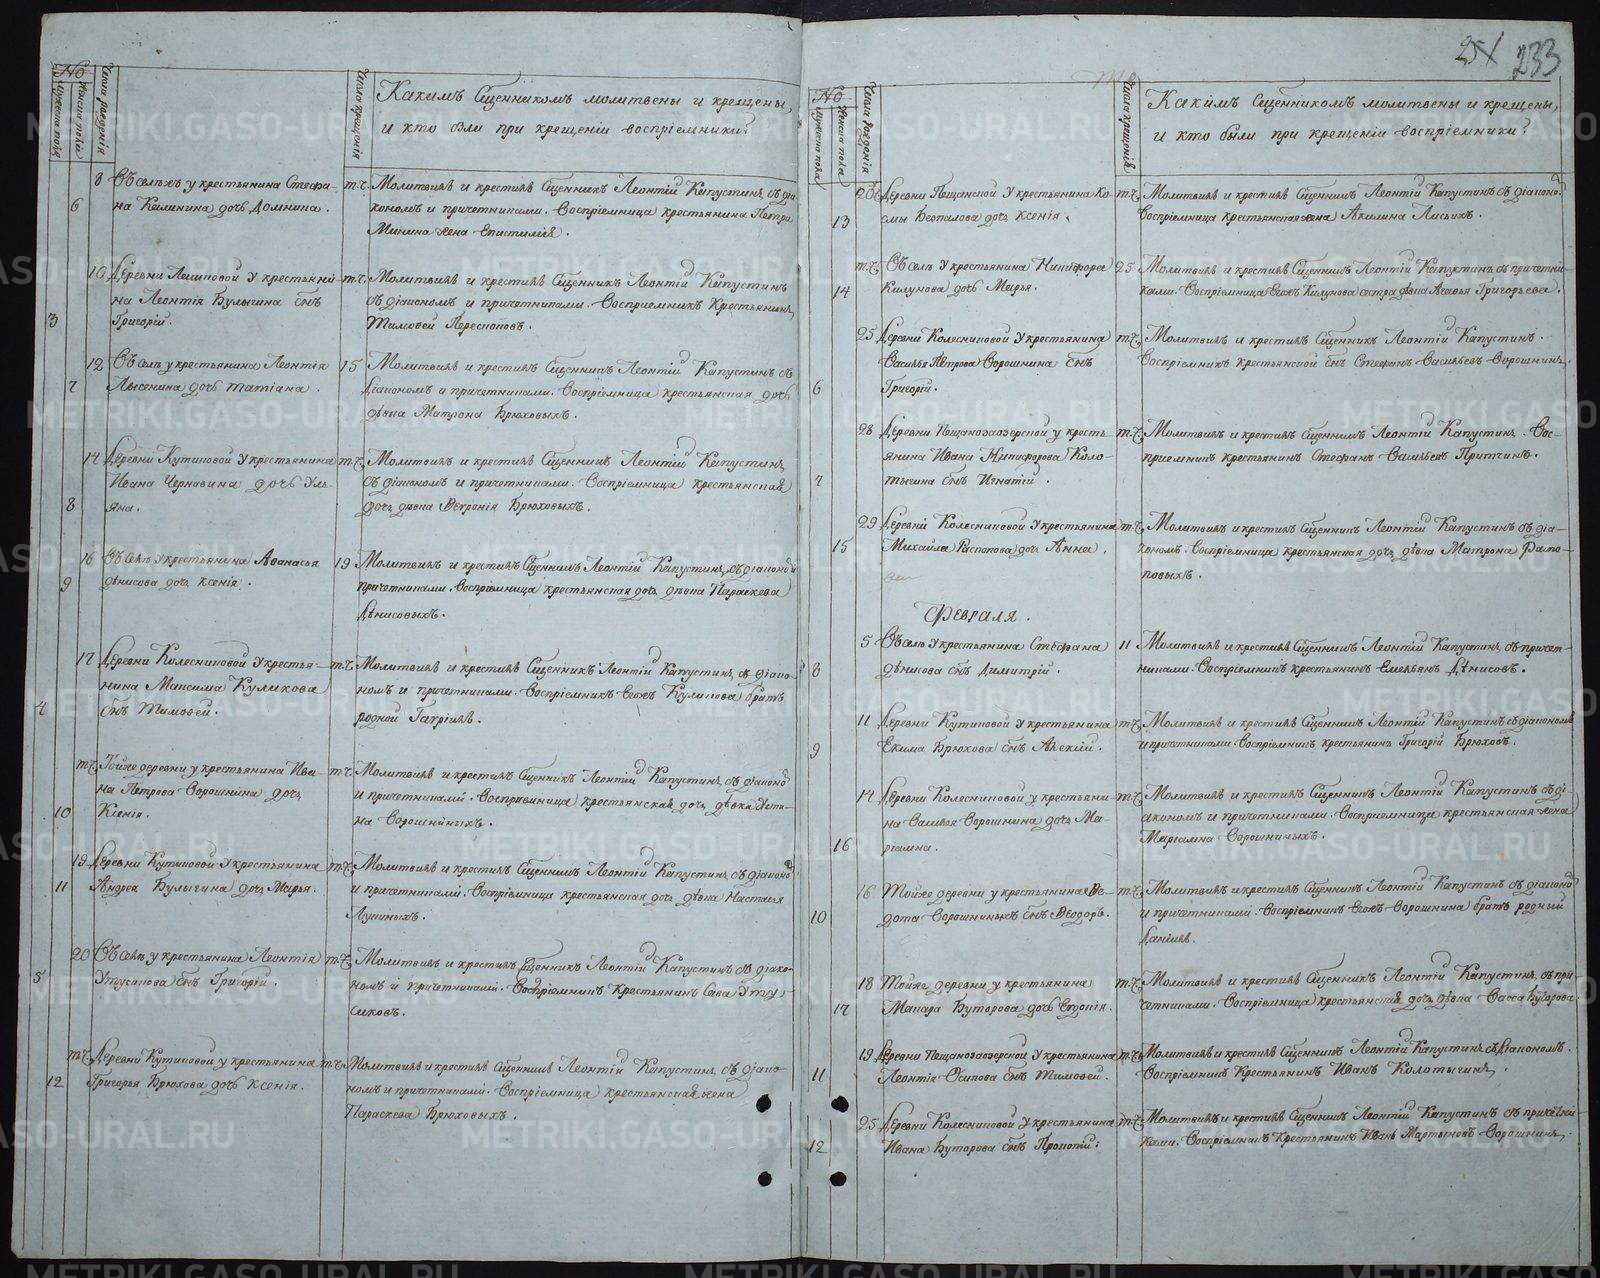 No
Мужеска пола
Женска пола
Числа рождения
Числа крещенія
Какимъ Сщенникомъ молитвены и крещены,
и кто были при крещеніи воспріемники?
8 Въ селѣ у крестьянина Стефа- т.ч. Молитвилъ и крестилъ Сщенникъ Леонтій Капустинъ, съ діа-
6 на Калинина дочь Домнина. кономъ и причетниками. Воспріемница крестьянина Петра
Минина жена Епистимія.
10 Деревни у крестьяни- т.ч. Молитвилъ и крестилъ Сщенникъ Леонтій Капустинъ
на Леонтія Булыгина сынъ съ діакономъ и причетниками. Воспріемникъ Крестьянинъ
3 Григорій. Тимофей Переспоповъ.
12 Въ селѣ у крестьянина Леонтія 15 Молитвилъ и крестилъ Сщенникъ Леонтій Капустинъ съ
7 Лысенина дочь Татіана. діакономъ и причетниками. Воспріемница крестьянская дочь
дѣвка Матрона Брюховыхъ.
14 Деревни Кутиковой у крестьянина т.ч. Молитвилъ и крестилъ Сщенникъ Леонтій Капустинъ,
Ивана Чернавина дочь Уль- съ діакономъ и причетниками. Воспріемница крестьянская
8 яна. дочь дѣвка Февронія Брюховыхъ.
16 Въ селѣ у крестьянина Аѳанасья 19 Молитвилъ и крестилъ Сщенникъ Леонтій Капустинъ, съ діакономъ и
9 Дѣнисова дочь Ксенія. причетниками. Воспріемница крестьянская дочь дѣвка Параскева
Дѣнисовыхъ.
17 Деревни Колесниковой у крестья- т.ч. Молитвилъ и крестилъ Сщенникъ Леонтій Капустинъ, съ діако-
нина Максима Куликова номъ и причетниками. Воспріемникъ Егожъ Куликова братъ
4 сынъ Тимофей. родной Гаврилъ.
т.ч. Тойже деревни у крестьянина Ива- т.ч. Молитвилъ и крестилъ Сщенникъ Леонтій Капустинъ, съ діакономъ
на Петрова Ворошнина дочь и причетниками. Воспріемница крестьянская дочь дѣвка
10 Ксенія. на Ворошниныхъ.
19 Деревни Кутиковой у крестьянина т.ч. Молитвилъ и крестилъ Сщенникъ Леонтій Капустинъ, съ діакономъ
11 Андрея Булыгина дочь Марья. и причетниками. Воспріемница крестьянская дочь дѣвка Настасья
20 Въ селѣ у крестьянина Леонтія т.ч. Молитвилъ и крестилъ Сщенникъ Леонтій Капустинъ съ діако-
5 Утусикова сынъ Григорій. номъ и причетниками. Воспріемникъ Крестьянинъ Сава Уту-
сиковъ.
т.ч. Деревни Кутиковой у крестьянина т.ч. Молитвилъ и крестилъ Сщенникъ Леонтій Капустинъ, съ діако-
12 Григорья Брюхова дочь Ксенія. номъ и причетниками. Воспріемница крестьянская жена
Параскева Брюховыхъ.
251 233
No
Мужеска пола
Женска пола
Числа рожденія
Числа крещенія
Какимъ Сщенникомъ молитвены и крещены,
и кто были при крещеніи воспріемники?
20 Деревни Пещанской у крестьянина Ко- т.ч. Молитвилъ и крестилъ Сщенникъ Леонтій Капустинъ съ діакономъ.
13 смы дочь Ксенія. Воспріемница крестьянская жена Акилина Лисьихъ.
т.ч. Въ селѣ у крестьянина Никифора 25 Молитвилъ и крестилъ Сщенникъ Леонтій Капустинъ, съ причетни-
14 Килунова дочь Марья. ками. Воспріемница Егожъ Килунова сестра дѣвка Агафья Григорьева.
25 Деревни Колесниковой у крестьянина т.ч. Молитвилъ и крестилъ Сщенникъ Леонтій Капустинъ.
Василья Петрова Ворошнина сынъ Воспріемникъ крестьянской сынъ Стефанъ Васильевъ Ворошнинъ.
6 Григорій.
28 Деревни Пещаноозерской у кресть- т.ч. Молитвилъ и крестилъ Сщенникъ Леонтій Капустинъ. Вос-
янина Ивана Никифорова Коло- пріемникъ крестьянинъ Стефанъ Васильевъ Притчинъ.
7 тыгина сынъ Игнатій.
29 Деревни Колесниковой у крестьянина т.ч. Молитвилъ и крестилъ Сщенникъ Леонтій Капустинъ съ діа-
15 Михайла Распопова дочь Анна. кономъ. Воспріемница крестьянская дочь дѣвка Матрона Распо-
повыхъ.
Февраля.
5 Въ селѣ у крестьянина Стефана 11 Молитвилъ и крестилъ Сщенникъ Леонтій Капустинъ, съ причет-
8 Дѣнисова сынъ Димитрій. никами. Воспріемникъ крестьянинъ Емельянъ Дѣнисовъ.
11 Деревни Кутиковой у крестьянина т.ч. Молитвилъ и крестилъ Сщенникъ Леонтій Капустинъ съ діакономъ
9 Екима Брюхова сынъ Алексій. и причетниками. Воспріемникъ крестьянинъ Григорій Брюховъ.
14 Деревни Колесниковой у крестьяни- т.ч. Молитвилъ и крестилъ Сщенникъ Леонтій Капустинъ съ ді-
на Василья Ворошнина дочь Ма- акономъ и причетниками. Воспріемница крестьянская жена
16 ріамна. Маріамна Ворошниныхъ.
16 Тойже деревни у крестьянина Ѳе- т.ч. Молитвилъ и крестилъ Сщенникъ Леонтій Капустинъ съ діакономъ
10 дота Ворошниныхъ сынъ Ѳеодоръ. и причетниками. Воспріемникъ Егожъ Ворошнина братъ родный
Данилъ.
18 Тойже деревни у крестьянина т.ч. Молитвилъ и крестилъ Сщенникъ Леонтій Капустинъ, съ при-
17 Макара Буторова дочь Евдокія. четниками. Воспріемница крестьянская дочь дѣвка Васса Буторова.
19 Деревни Пещаноозерской у крестьянина т.ч. Молитвилъ и крестилъ Сщенникъ Леонтій Капустинъ съ Діакономъ.
11 Леонтія Осипова сынъ Тимофей. Воспріемникъ Крестьянинъ Иванъ Колотыгинъ.
25 Деревни Колесниковой у крестьянина т.ч. Молитвилъ и крестилъ Сщенникъ Леонтій Капустинъ съ причетни-
12 Ивана Буторова сынъ Прокопій. ками. Воспріемникъ Крестьянинъ Иванъ Мартыновъ Ворошнинъ.
METRIKI.GASO-URAL.RU